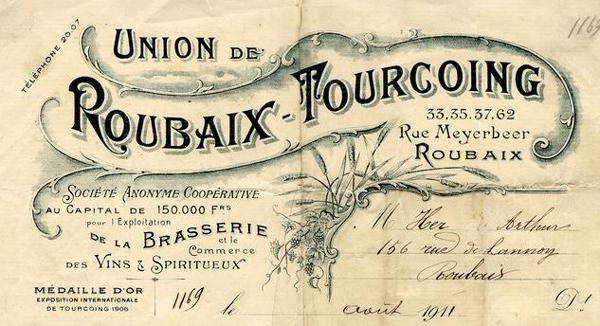 TÉLÉPHONE 20.07
1169
UNION DE
ROUBAIX-TOURCOING
33.35.37.62
Rue Meyerbeer
ROUBAIX
SOCIÉTÉ ANONYME COOPÉRATIVE
AU CAPITAL DE 150.000 FRS
pour l'Exploitation
DE LA BRASSERIE
et le
Commerce
DES VINS & SPIRITUEUX
MÉDAILLE D'OR
EXPOSITION INTERNATIONALE
DE TOURCOING 1906
M Her Arthur
156 rue de Lannoy
Roubaix
1169 le août 1911 Dt